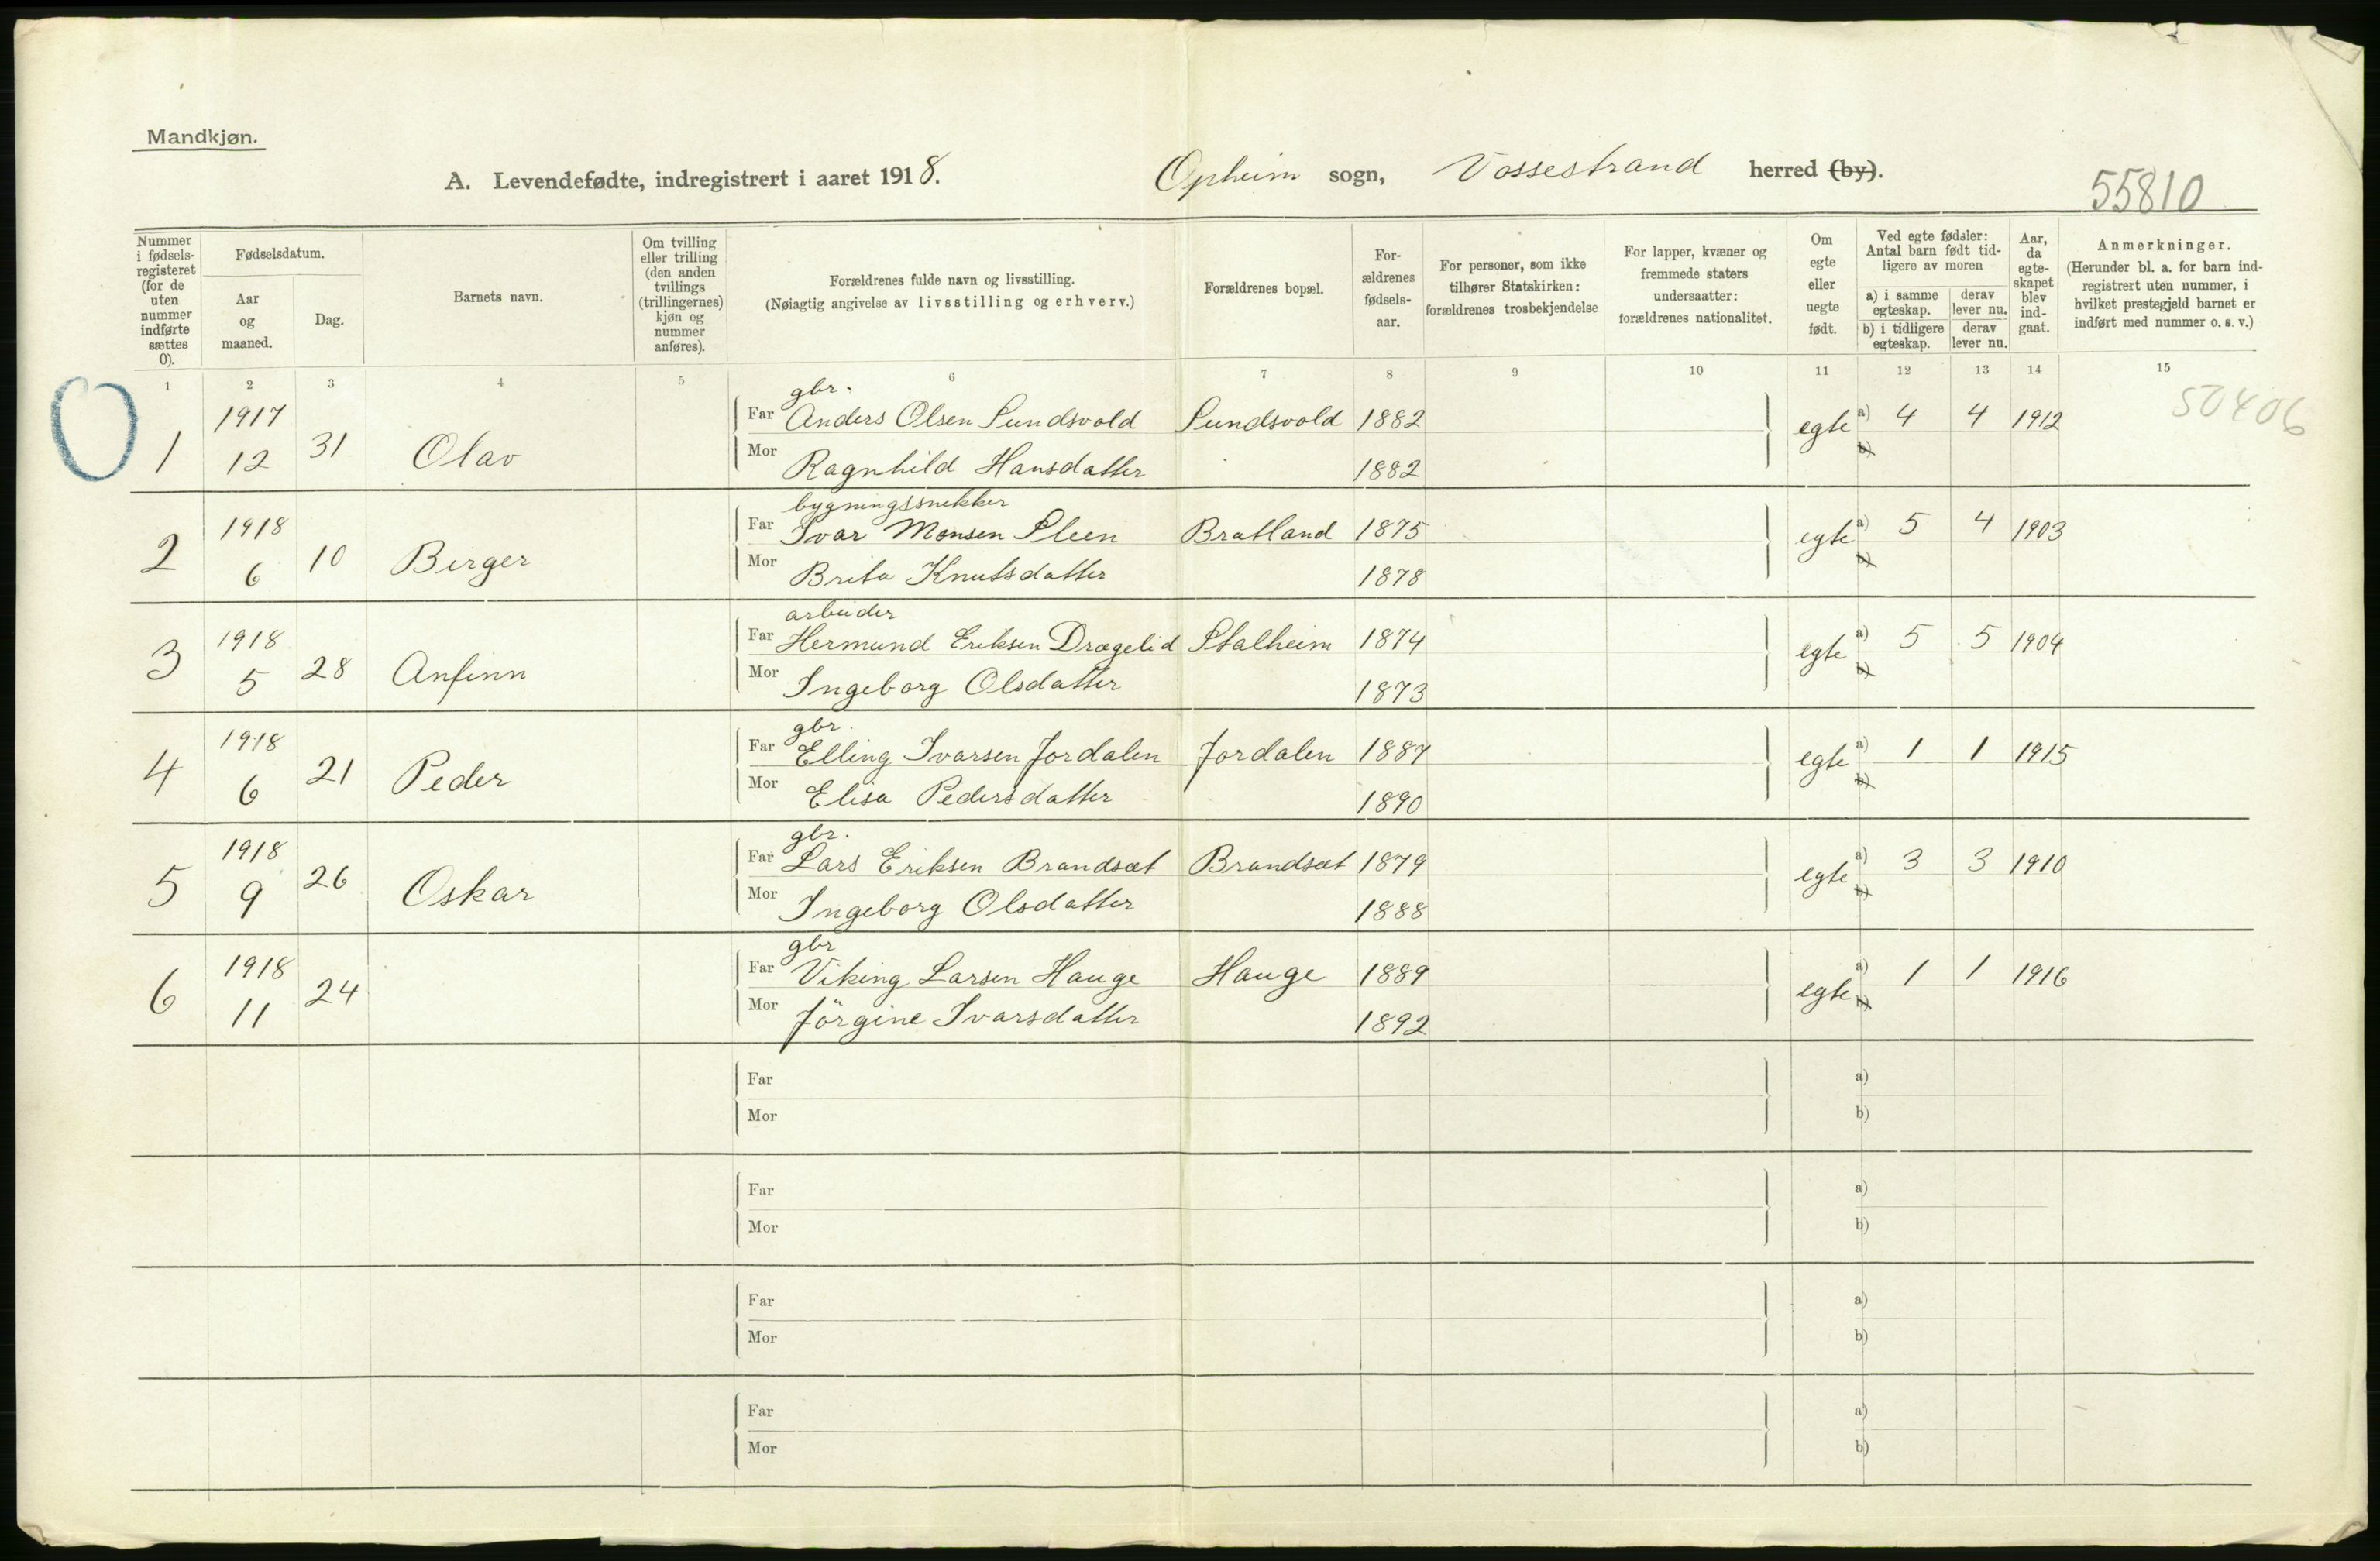 Mandkjøn.
A. Levendefødte, indregistrert i aaret 1918. Opheim sogn, Vossestrand herred (by).
55810
Nummer i fødselsregisteret (for de uten nummer indførte sættes 0).
Fødselsdatum.
Aar og maaned.
Dag.
Barnets navn.
Om tvilling eller trilling (den anden tvillings (trillingernes) kjøn og nummer anføres).
Forældrenes fulde navn og livsstilling.
(Nøiagtig angivelse av livsstilling og erhverv.)
Forældrenes bopæl.
Forældrenes fødselsaar.
For personer, som ikke tilhører Statskirken: forældrenes trosbekjendelse
For lapper, kvæner og fremmede staters undersaatter: forældrenes nationalitet.
Om egte eller uegte født.
Ved egte fødsler: Antal barn født tidligere av moren
a) i samme egteskap. derav lever nu.
b) i tidligere egteskap. derav lever nu.
Aar, da egteskapet blev indgaat.
Anmerkninger.
(Herunder bl. a. for barn indregistrert uten nummer, i hvilket prestegjeld barnet er indført med nummer o. s. v.)
1 2 3 4 5 6 7 8 9 10 11 12 13 14 15
0
50406
gbr.
1 1917 12 31 Olav Far Anders Olsen Sundsvold Sundsvold 1882 egte a) 4 4 1912
Mor Ragnhild Hansdatter 1882 b)
bygningssnekker
2 1918 6 10 Birger Far Ivar Monsen Sleen Bratland 1875 egte a) 5 4 1903
Mor Brita Knutsdatter 1878 b)
arbeider
3 1918 5 28 Anfinn Far Hermund Eriksen Drægelid Stalheim 1874 egte a) 5 5 1904
Mor Ingeborg Olsdatter 1873 b)
gbr.
4 1918 6 21 Peder Far Elling Ivarsen Jordalen Jordalen 1887 egte a) 1 1 1915
Mor Elisa Pedersdatter 1890 b)
gbr.
5 1918 9 26 Oskar Far Lars Eriksen Brandsæt Brandsæt 1879 egte a) 3 3 1910
Mor Ingeborg Olsdatter 1888 b)
gbr
6 1918 11 24 Far Viking Larsen Hauge Hauge 1889 egte a) 1 1 1916
Mor Jörgine Ivarsdatter 1892 b)
Far a)
Mor b)
Far a)
Mor b)
Far a)
Mor b)
Far a)
Mor b)